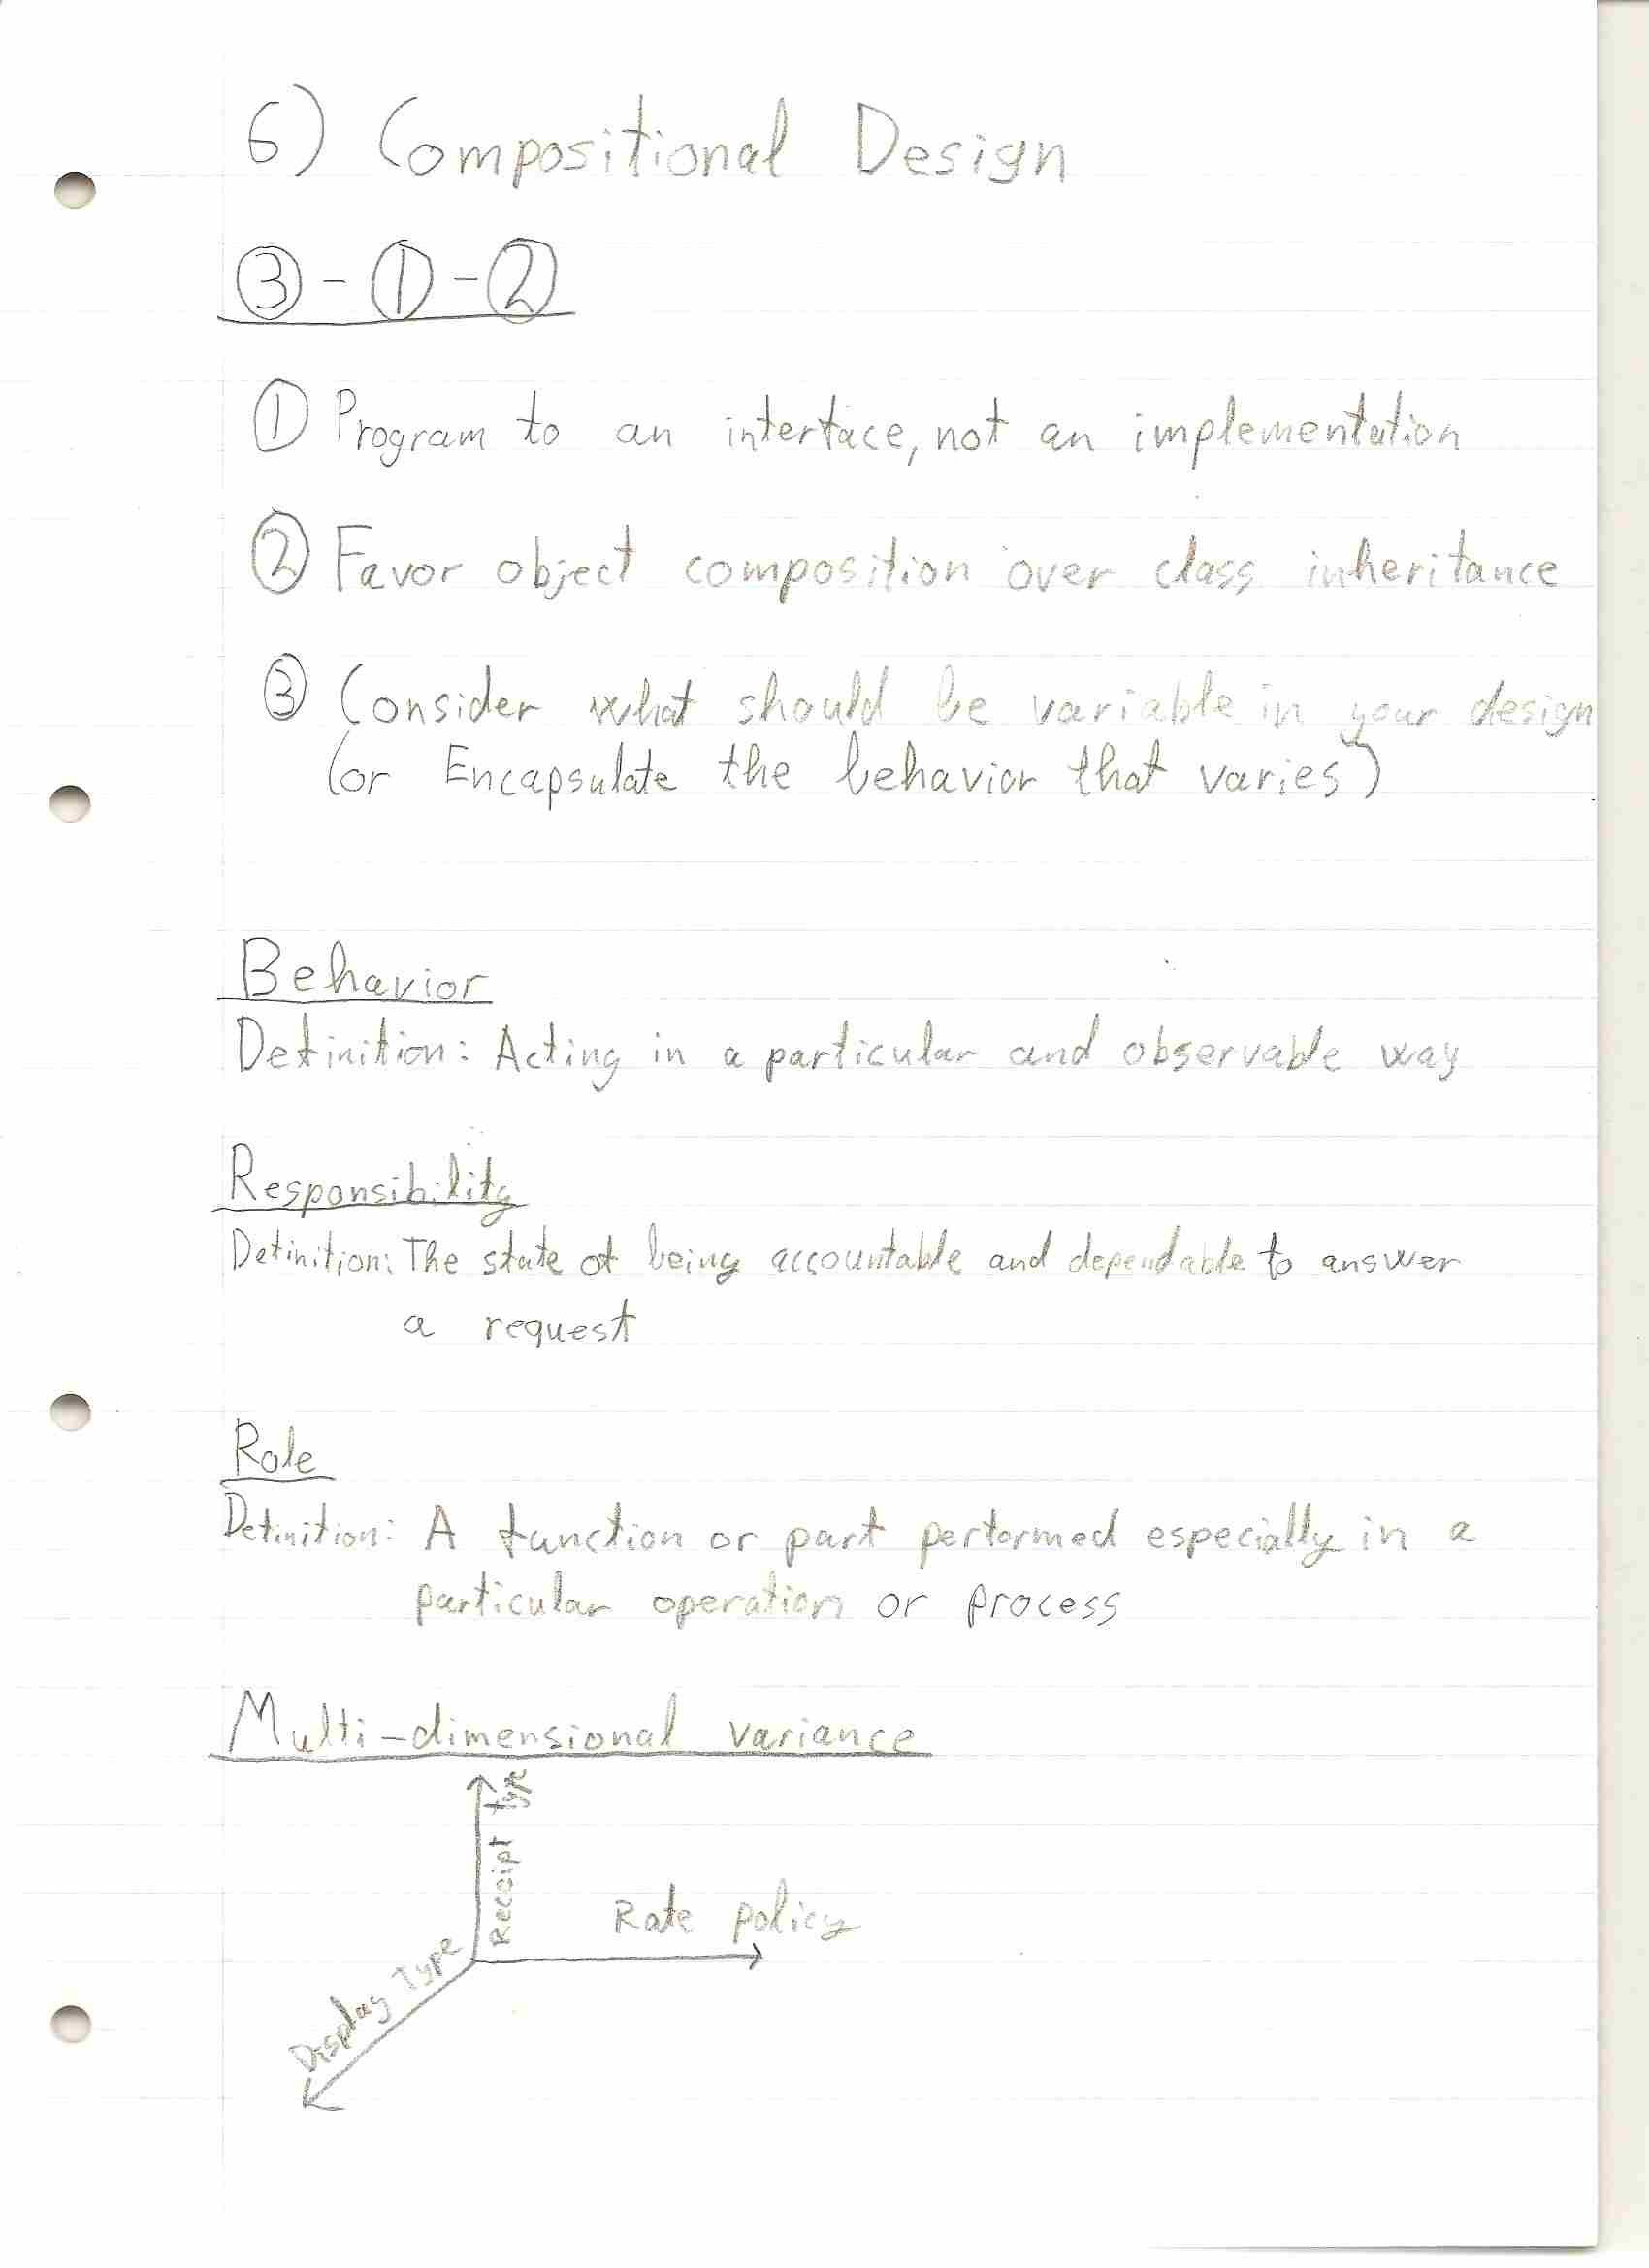 6) Compositional Design
③-①-②
① Program to an interface, not an implementation
② Favor object composition over class inheritance
③ Consider what should be variable in your design
(or Encapsulate the behavior that varies)
Behavior
Definition: Acting in a particular and observable way
Responsibility
Definition: The state of being accountable and dependable to answer
a request
Role
Definition: A function or part performed especially in a
particular operation or process
Multi-dimensional variance
Receipt type
Rate policy
Display Type